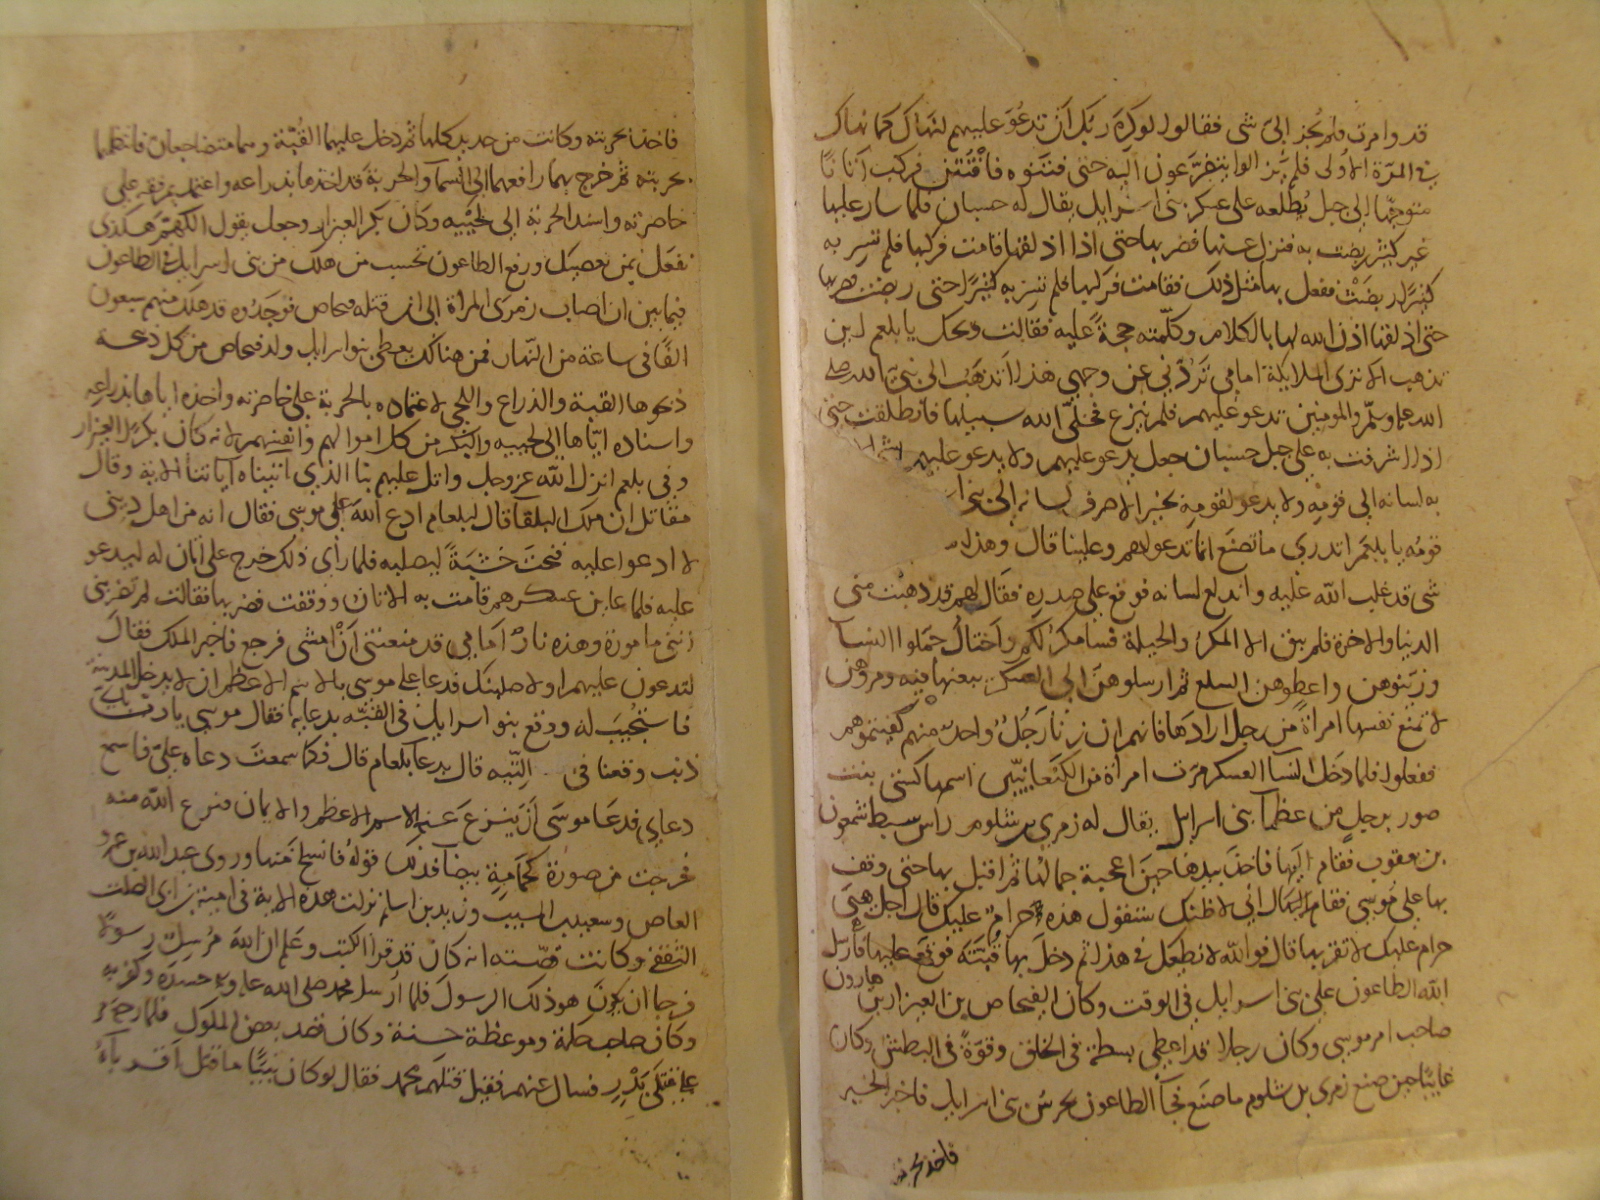 قد وامرت فلم يجز الى شى فقالوا لو كره ربك ان تدعو عليهم لنهاك كما نهاك
فى المرة الاولى فلم يزالوا يتضرعون اليه حتى فتنوه فافتتن فركب اتانا
متوجها الى جبل يطلعه على عسكر بنى اسرايل يقال له حسبان فلما سار عليها
غير كثير ربضت به فنزل عنها فضربها حتى اذا اذلقها قامت فركبها فلم تسر به
كثيرا ربضت ففعل بها مثل ذلك فقامت فركبها فلم تسر به كثيرا حتى ربضت فضربها
حتى اذلقها اذن الله لها بالكلام وكلمته حجة عليه فقالت ويحك يا بلعم اين
تذهب الا ترى الملايكة امامى تردنى عن وجهى هذا اتذهب الى نبى الله صلى
الله عليه وسلم والمومنين تدعو عليهم فلم ينزع فخلى الله سبيلها فانطلقت حتى
اذا اشرفت به على جبل حسبان جعل يدعو عليهم ولا يدعو عليهم
به لسانه الى قومه ولا يدعو لقومه بخير الا صرف لسانه الى بنى
قومه يا بلعم اتدرى ما تصنع انما تدعو لهم وعلينا قال وهذا
شى قد غلب الله عليه واندلع لسانه فوقع على صدره فقال لهم قد ذهبت منى
الدنيا والاخرة فلم يبق الا المكر والحيلة فسامكر لكم واحتال جملوا النسا
وزينوهن واعطوهن السلع ثم ارسلوهن الى العسكر يبعنها فيه ومروهن
لا تمنع نفسها امراة من رجل ارادها فانهم ان زنا رجل واحد منهم كفيتموهم
ففعلوا فلما دخل النسا العسكر مرت امراة من الكنعانيين اسمها كستى بنت
صور برجل من عظما بنى اسرايل يقال له زمرى بن شلوم راس سبط شمعون
بن يعقوب فقام اليها فاخذ بيدها حين اعجبه جمالها ثم اقبل بها حتى وقف
بها على موسى فقام فقال انى لاظنك ستقول هذه حرام عليك قال اجل هى
حرام عليك لا تقربها قال فوالله لا نطيعك فى هذا ثم دخل بها قبته فوقع عليها فارسل
الله الطاعون على بنى اسرايل فى الوقت وكان الفيحاص بن العيزار بن هارون
صاحب امر موسى وكان رجلا قد اعطى بسطة فى الخلق وقوة فى البطش وكان
غايبا حين صنع زمرى بن شلوم ما صنع فجا الطاعون يحوس بنى اسرايل فاخبر الخبر
فاخذ حربته
فاخذ حربته وكانت من حديد كلها ثم دخل عليهما القبة وهما متضاجعان فانتظمهما
بحربته ثم خرج بهما رافعهما الى السما والحربة قد اخذها بذراعه واعتمد بمرفقه على
خاصرته واسند الحربة الى لحييه وكان بكر العيزار وجعل يقول اللهم هكذى
نفعل بمن يعصيك ورفع الطاعون فحسب من هلك من بنى اسرايل فى الطاعون
فيما بين ان اصاب زمرى المراة الى ان قتله فيحاص فوجدوه قد هلك منهم سبعون
الفا فى ساعة من النهار فمن هنالك يعطى بنو اسرايل ولد فيحاص من كل ذبيحة
ذبحوها القبة والذراع واللحى لاعتماده بالحربة على خاصرته واخذه اياها بذراعه
واسناده اياها الى لحييه والبكر من كل اموالهم وانفسهم لانه كان بكر العيزار
وفى بلعم انزل الله عز وجل واتل عليهم نبا الذى اتيناه اياتنا الاية وقال
مقاتل ان ملك البلقا قال لبلعام ادع الله على موسى فقال انه من اهل دينى
لا ادعوا عليه فنحت خشبة ليصلبه فلما راى ذلك خرج على اتان له ليدعو
عليه فلما عاين عسكرهم قامت به الاتان ووقفت فضربها فقالت لم تضربنى
اننى مامورة وهذه نار امامى قد منعتنى ان امشى فرجع فاخبر الملك فقال
لتدعون عليهم او لاصلبنك فدعا على موسى بالاسم الاعظم ان لا يدخل المدينة
فاستجيب له ووقع بنو اسرايل فى التيه بدعايه فقال موسى يا رب باى
ذنب وقعنا فى التيه قال بدعا بلعام قال فكما سمعت دعاه على فاسمع
دعاى فدعا موسى ان ينزع عنه الاسم الاعظم والايمان فنزع الله منه
فخرجت من صورة كحمامة بيضا فذلك قوله فانسلخ منها وروى عبد الله بن عمرو
العاص وسعيد بن المسيب وزيد بن اسلم نزلت هذه الاية فى امية بن ابى الصلت
الثقفى وكانت قصته انه كان قد قرا الكتب وعلم ان الله مرسل رسولا
فرجا ان يكون هو ذلك الرسول فلما ارسل محمد صلى الله عليه وسلم حسده وكفر به
وكان صاحب حكمة وموعظة حسنة وكان قصد بعض الملوك فلما رجع مر
على قتلى بدر فسال عنهم فقيل قتلهم محمد فقال لو كان نبيا ما قتل اقرباه